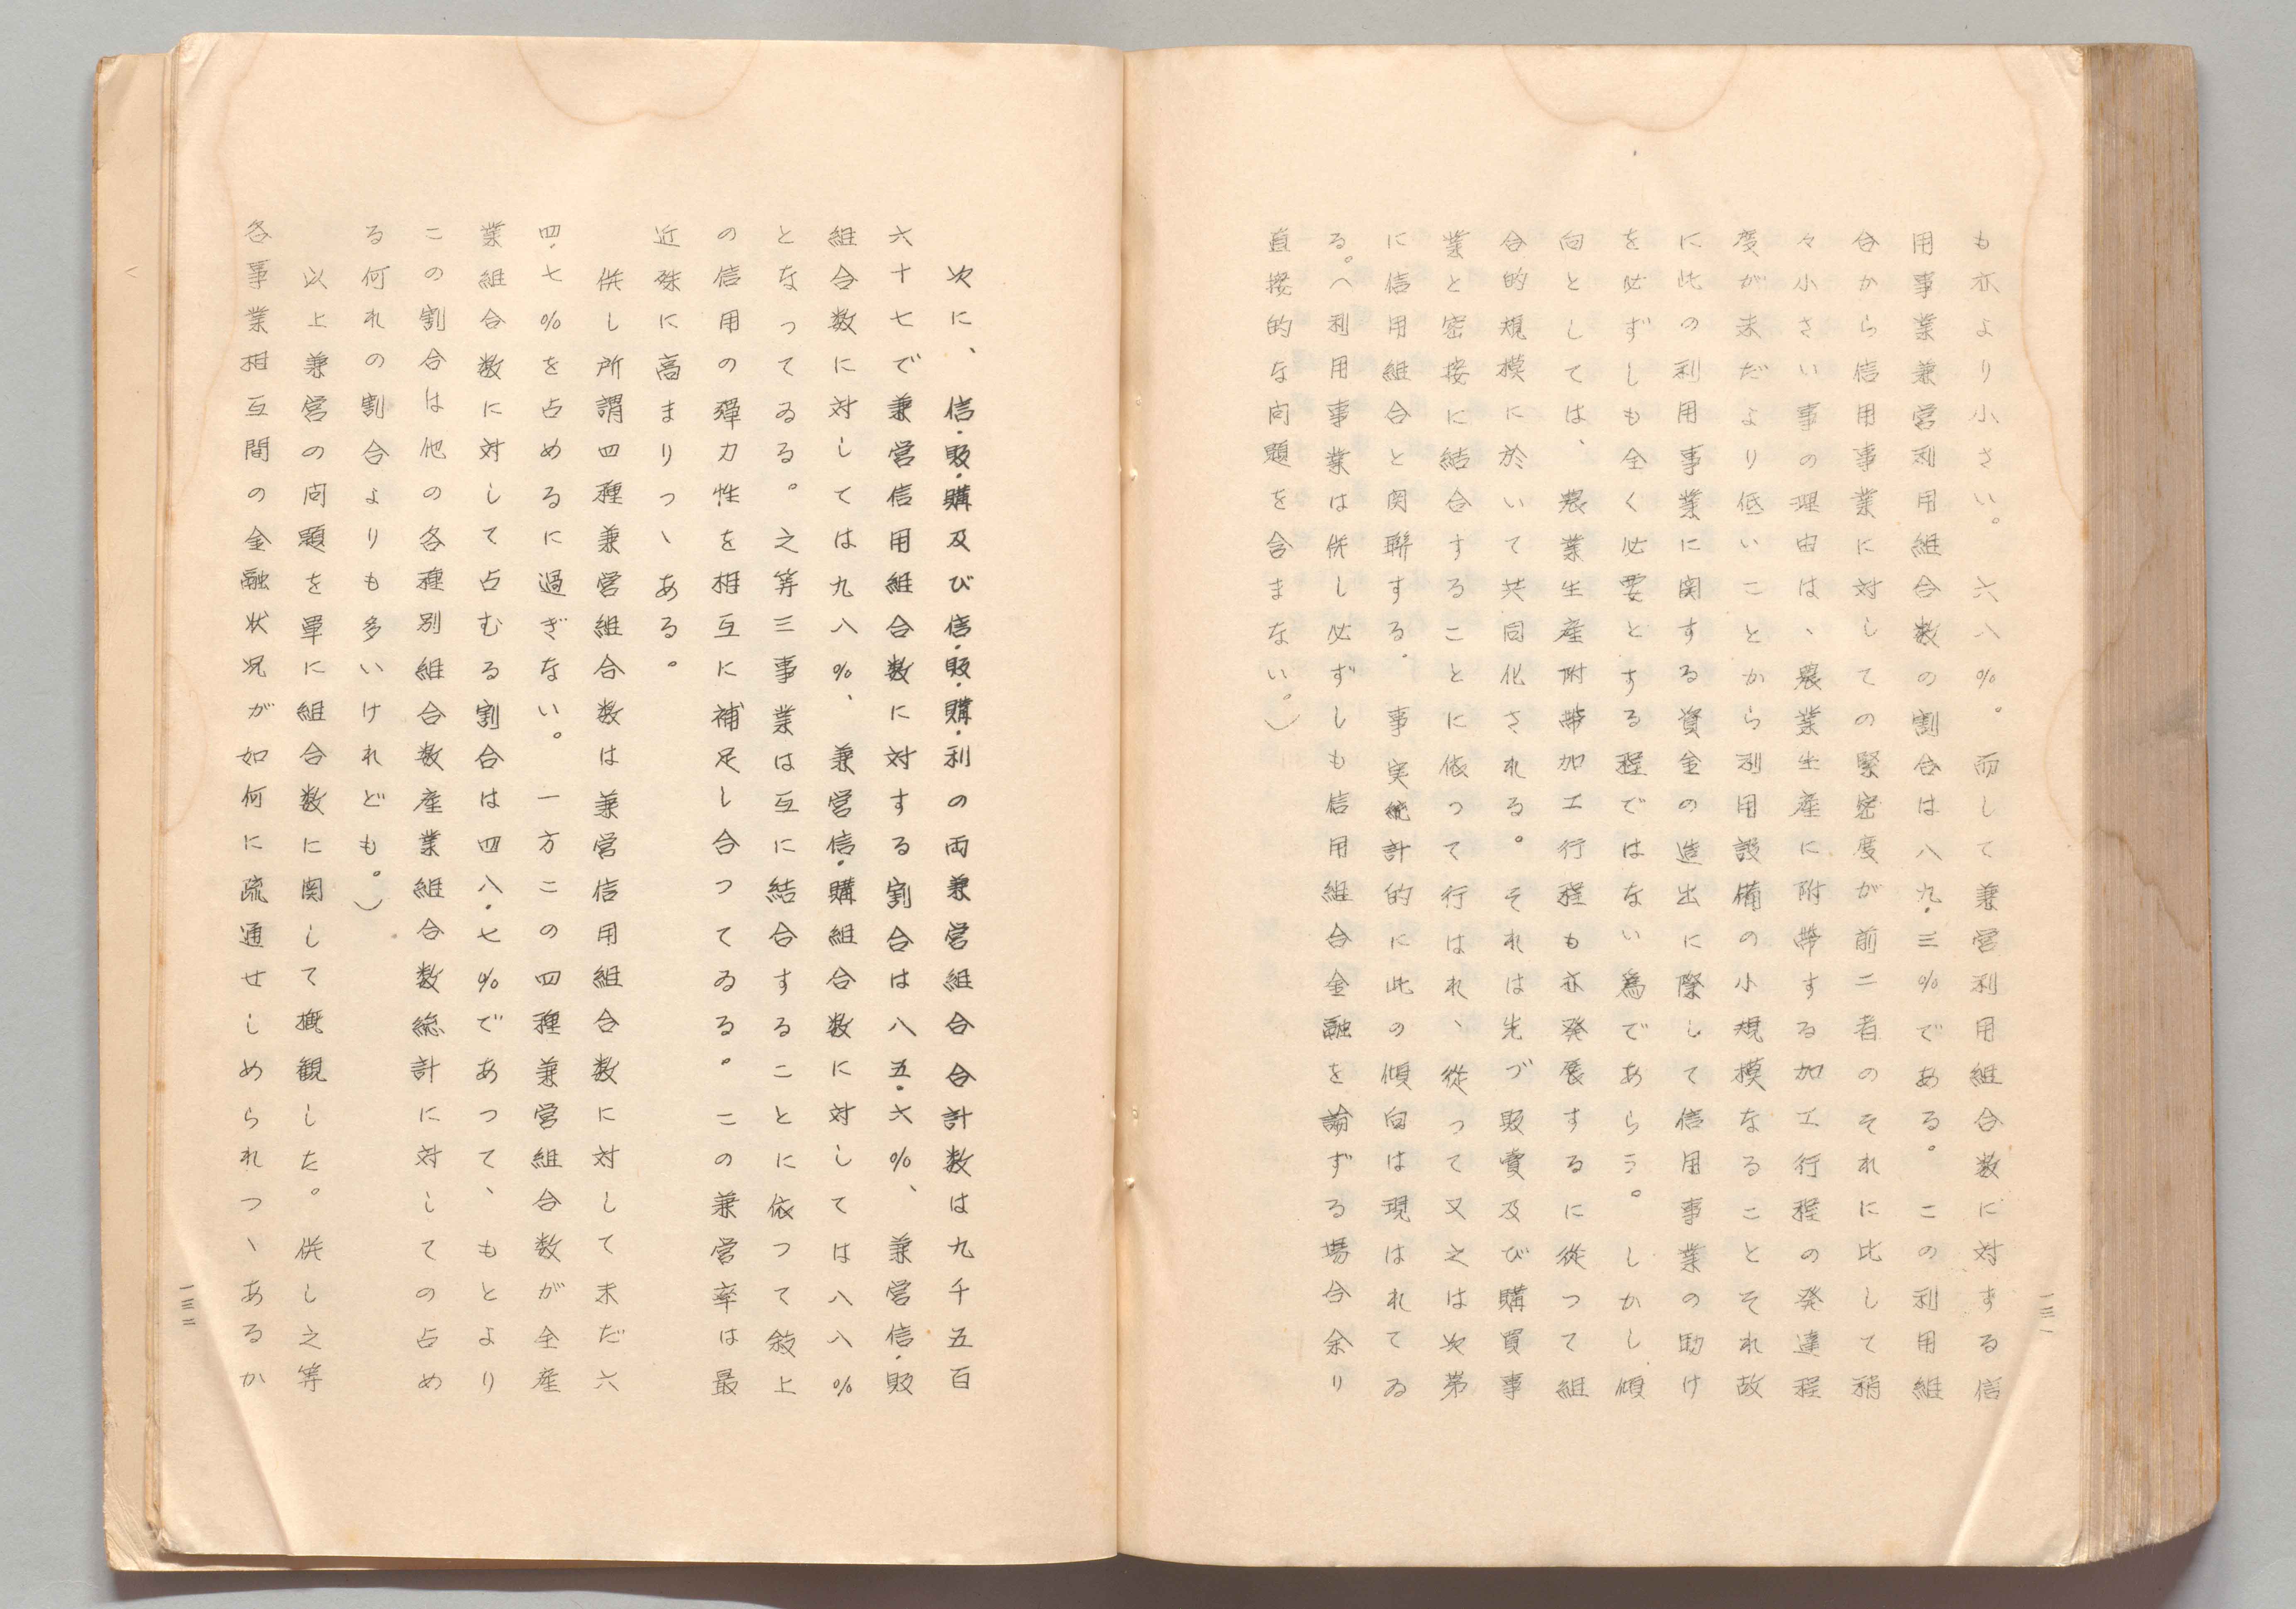 も亦より小さい。六八%。而して兼営利用組合数に対する信
用事業兼営利用組合数の割合は八九・三%である。この利用組
合から信用事業に対しての緊密度が前二者のそれに比して稍
々小さい事の理由は、農業生産に附帯する加工行程の発達程
度が未だより低いことから利用設備の小規模なることそれ故
に此の利用事業に関する資金の造出に際して信用事業の助け
を必ずしも全く必要とする程ではない為であらう。しかし傾
向としては、農業生産附帯加工行程も亦発展するに従つて組
合的規模に於いて共同化される。それは先づ販賣及び購買事
業と密接に結合することに依つて行はれ、從つて又之は次第
に信用組合と関聯する。事実統計的に此の傾向は現はれてゐ
る。（利用事業は併し必ずしも信用組合金融を論ずる場合余り
直接的な问題を含まない。）
一三一
次に、信・販・購及び信・販・購・利の両兼営組合合計数は九千五百
六十七で兼営信用組合数に対する割合は八五・六%、兼営信・販
組合数に対しては九八%、兼営信・購組合数に対しては八八%
となつてゐる。之等三事業は互に結合することに依つて敍上
の信用の彈力性を相互に補足し合つてゐる。この兼営率は最
近殊に高まりつゝある。
併し所謂四種兼営組合数は兼営信用組合数に対して未だ六
四・七%を占めるに過ぎない。一方この四種兼営組合数が全産
業組合数に対して占むる割合は四八・七%であつて、もとより
この割合は他の各種別組合数産業組合数総計に対しての占め
る何れの割合よりも多いけれども。）
以上兼営の问題を單に組合数に関して概観した。併し之等
各事業相互間の金融状況が如何に疏通せしめられつゝあるか
一三二